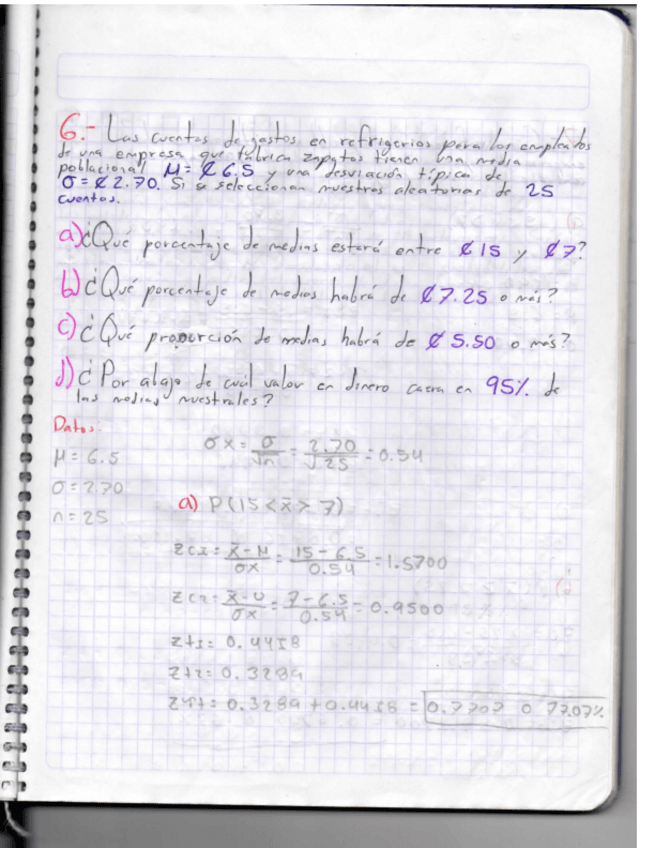 6.- Las cuentas de gastos en refrigerios para los empleados
de una empresa que fabrica zapatos tienen una media
poblacional μ= ₡6.5 y una desviación típica de
σ=₡2.70. Si se seleccionan muestras aleatorias de 25
cuentas.
a)¿Qué porcentaje de medias estará entre ₡15 y ₡7?
b)¿Qué porcentaje de medias habrá de ₡7.25 o más?
c)¿Qué proporción de medias habrá de ₡5.50 o más?
d)¿Por abajo de cuál valor en dinero caera en 95% de
las medias muestrales?
Datos:
σx = σ/√n = 2.70/√25 = 0.54
μ= 6.5
σ= 2.70
n= 25
a) P(15 < x̄ > 7)
zc1= x̄-μ/σx = 15-6.5/0.54 = 1.5700
zc2= x̄-μ/σx = 7-6.5/0.54 = 0.9500
zt1= 0.4418
zt2= 0.3289
= 0.3289 + 0.4418 = 0.7707 o 77.07%